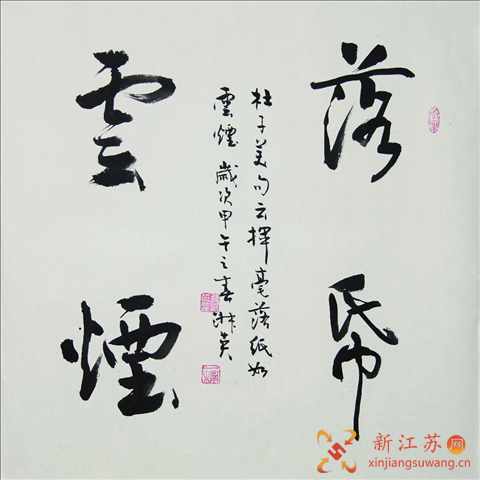 落帋
杜子美句云揮毫落紙如
雲煙 歲次甲午之春 英
雲煙
新江苏网
xinjiangsuwang.cn